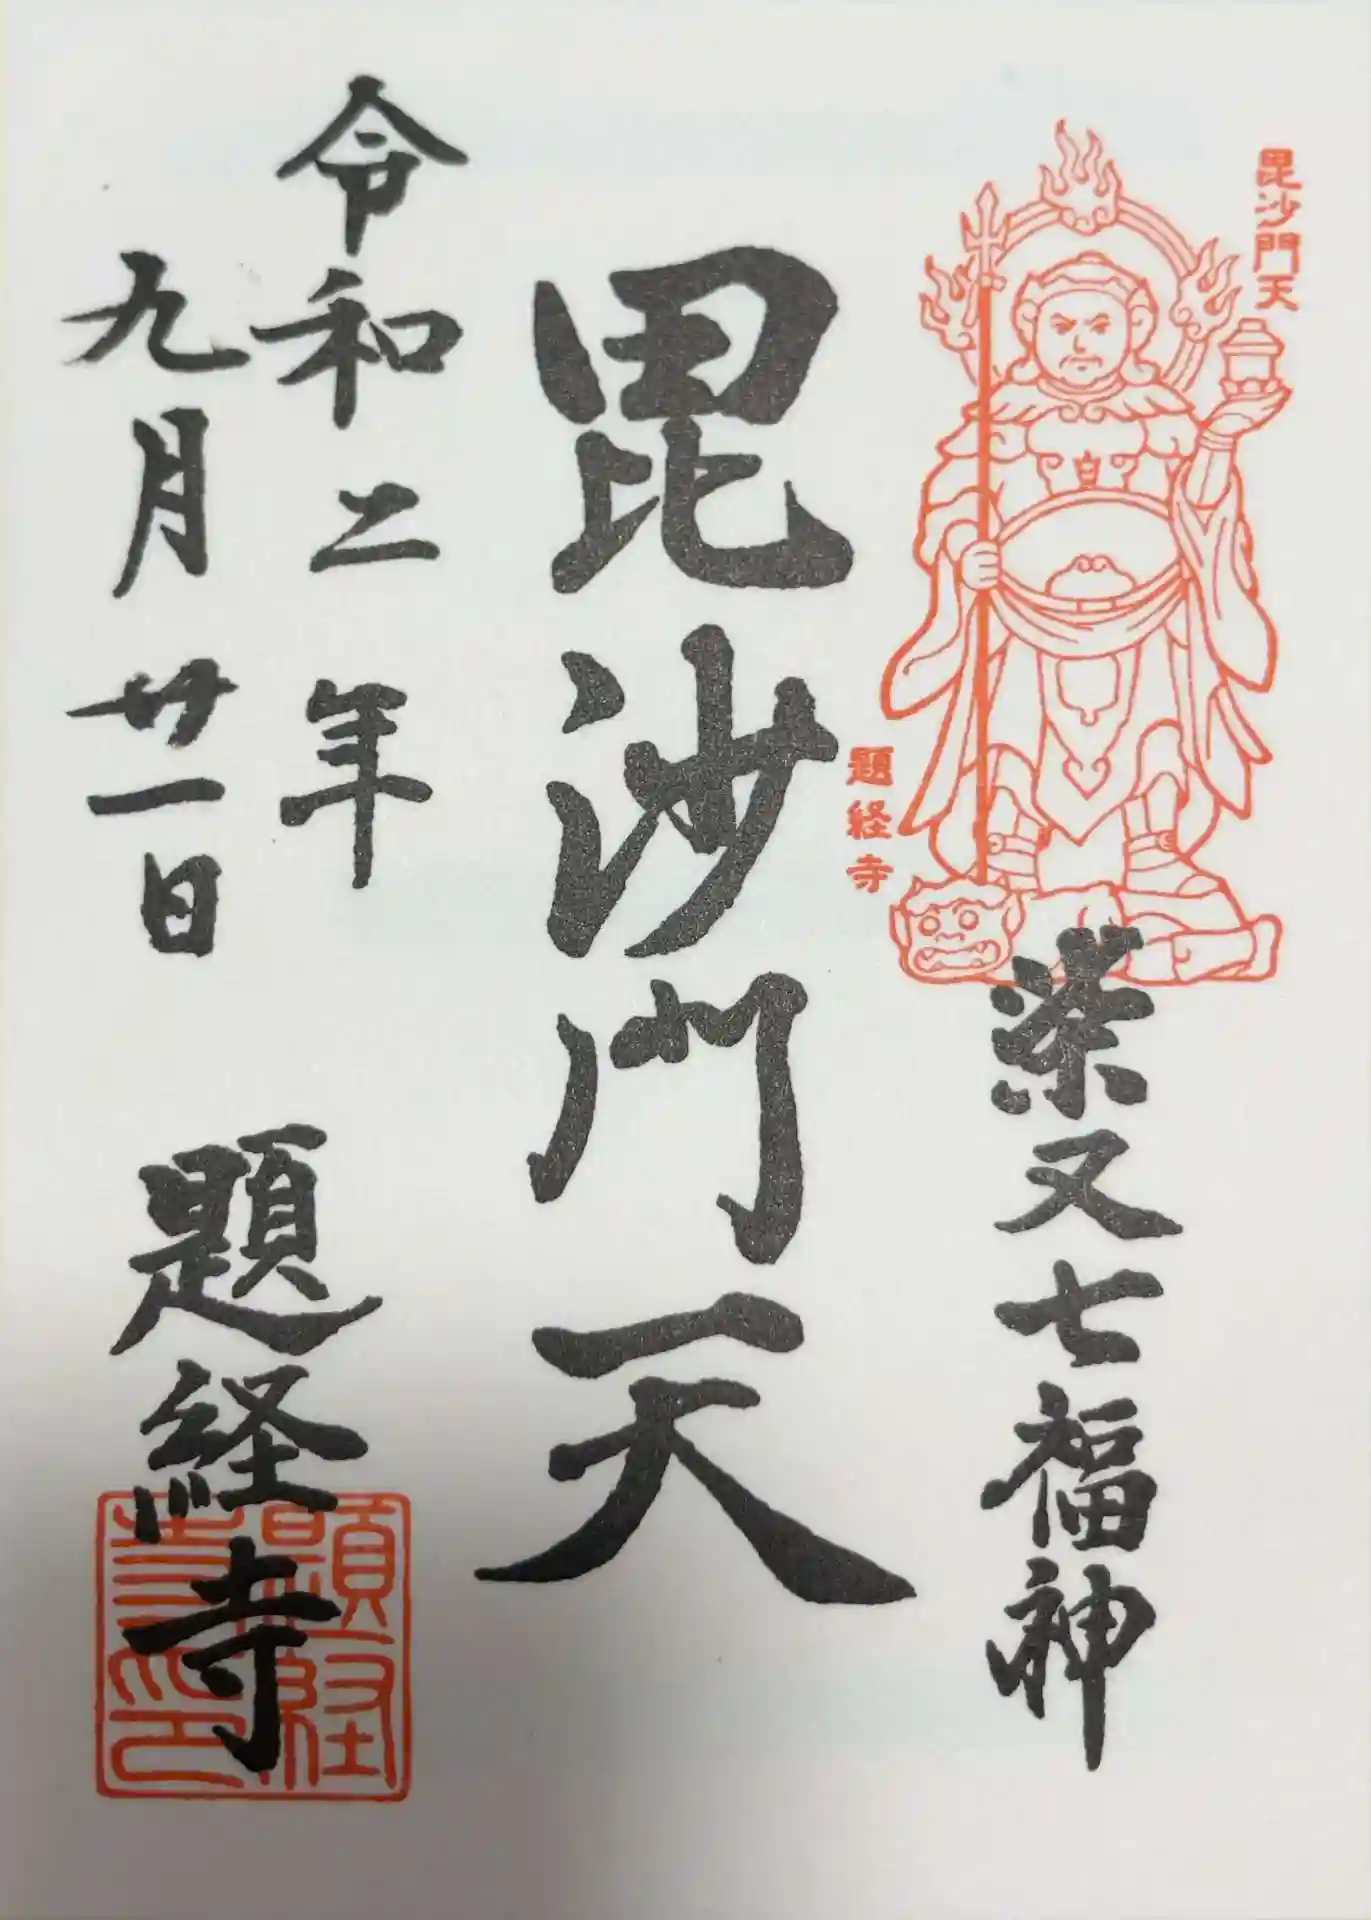 毘沙門天
題経寺
柴又七福神
毘沙門天
令和二年
九月廿一日
題経寺
題経寺印